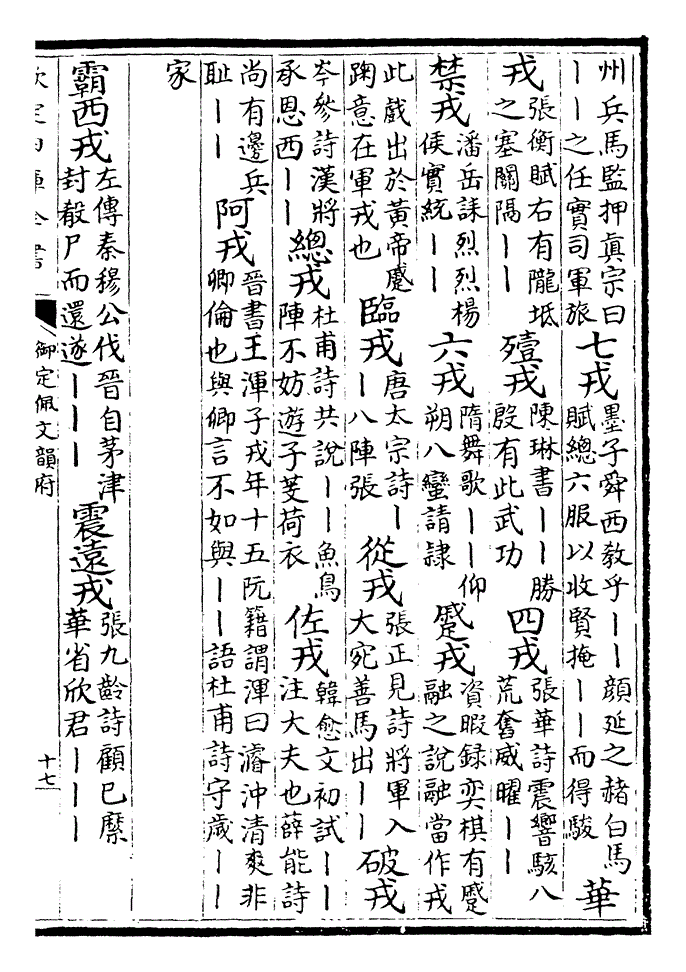 州兵馬監押真宗曰——之任實司軍旅 七戎 墨子舜西教乎——顔延之赭白馬賦總六服以收賢掩——而得駿 華
戎 張衡賦右有隴坻之塞關隔—— 殪戎 陳琳書——勝殷有此武功 四戎 張華詩震響駭八荒奮威曜——
禁戎 潘岳誄烈烈楊侯實統—— 六戎 隋舞歌——仰朔八蠻請隷 蹙戎 資暇録奕棋有蹙融之說融當作戎
此戲出於黃帝蹙踘意在軍戎也 臨戎 唐太宗詩——八陣張 從戎 張正見詩將軍入大宛善馬出—— 破戎
岑參詩漢將承恩西—— 總戎 杜甫詩共說——魚鳥陣不妨遊子芰荷衣 佐戎 韓愈文初試——注大夫也薛能詩
尚有邊兵耻—— 阿戎 晉書王渾子戎年十五阮籍謂渾曰濬沖清爽非卿倫也與卿言不如與——語杜甫詩守歲——
家
霸西戎 左傳秦穆公伐晉自茅津封殽尸而還遂——— 震遠戎 張九齡詩顧已縻華省欣君———
欽定四庫全書 御定佩文韻府 十七